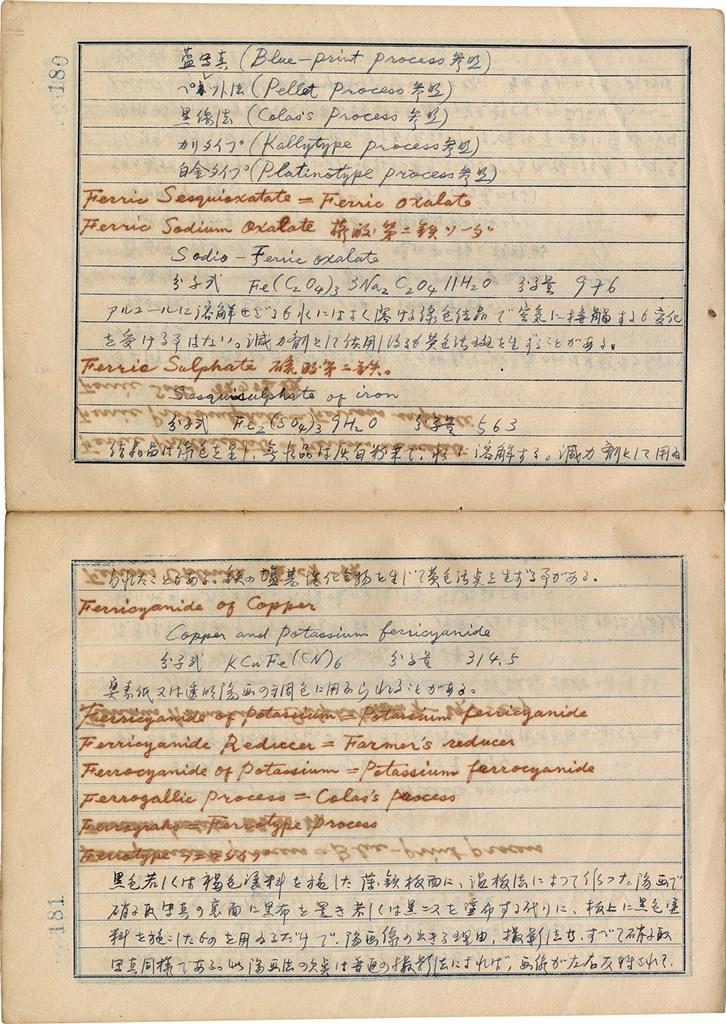 180
藍写真 (Blue-print process 参照)
ペレット法 (Pellet Process 参照)
黒像法 (Colas's Process 参照)
カリタイプ (Kallytype process 参照)
白金タイプ (Platinotype process 参照)
Ferric Sesquioxatate = Ferric oxalate
Ferric Sodium Oxalate 蓚酸第二鉄ソーダ
Sodio-Ferric oxalate
分子式 Fe(C2O4)3 3Na2 C2O4 11H2O 分子量 976
アルコールに溶解せざるも水にはよく溶ける緑色結晶で空気に接触するも変化
を受ける事はない。減力剤として使用し後が黄色汚斑を生ずることがある。
Ferric Sulphate 硫酸第二鉄。
Sesquisulphate of iron
分子式 Fe2(SO4)3 9H2O 分子量 563
結晶品は緑色を呈し、無水品は灰白粉末で、水に溶解する。減力剤として用ゐ
られたことがある。鉄の塩基性化合物を生じて黄色汚点を生ずる事がある。
Ferricyanide of Copper
Copper and Potassium ferricyanide
分子式 KCuFe(CN)6 分子量 314.5
臭素紙又は透明陽画の調色に用ゐられることがある。
Ferricyanide of potassium = Potassium ferricyanide
Ferricyanide Reducer = Farmer's reducer
Ferrocyanide of Potassium = Potassium ferrocyanide
Ferrogallic Process = Colas's process
Ferrograhs = Ferrotype process
Ferrotype = Blue-print process
黒色若しくは褐色漆料を施した薄鉄板面に、湿板法によつて作つた陽画で
硝子取写真の裏面に黒布を置き若しくは黒ニスを塗布する代りに、板上に黒色塗
料を施こしたものを用ゐるだけで、陽画像の出来る理由、撮影法等、すべて硝子取
写真同様である。此陽画法の欠点は普通の撮影法によれば、画像が左右反転されて
181